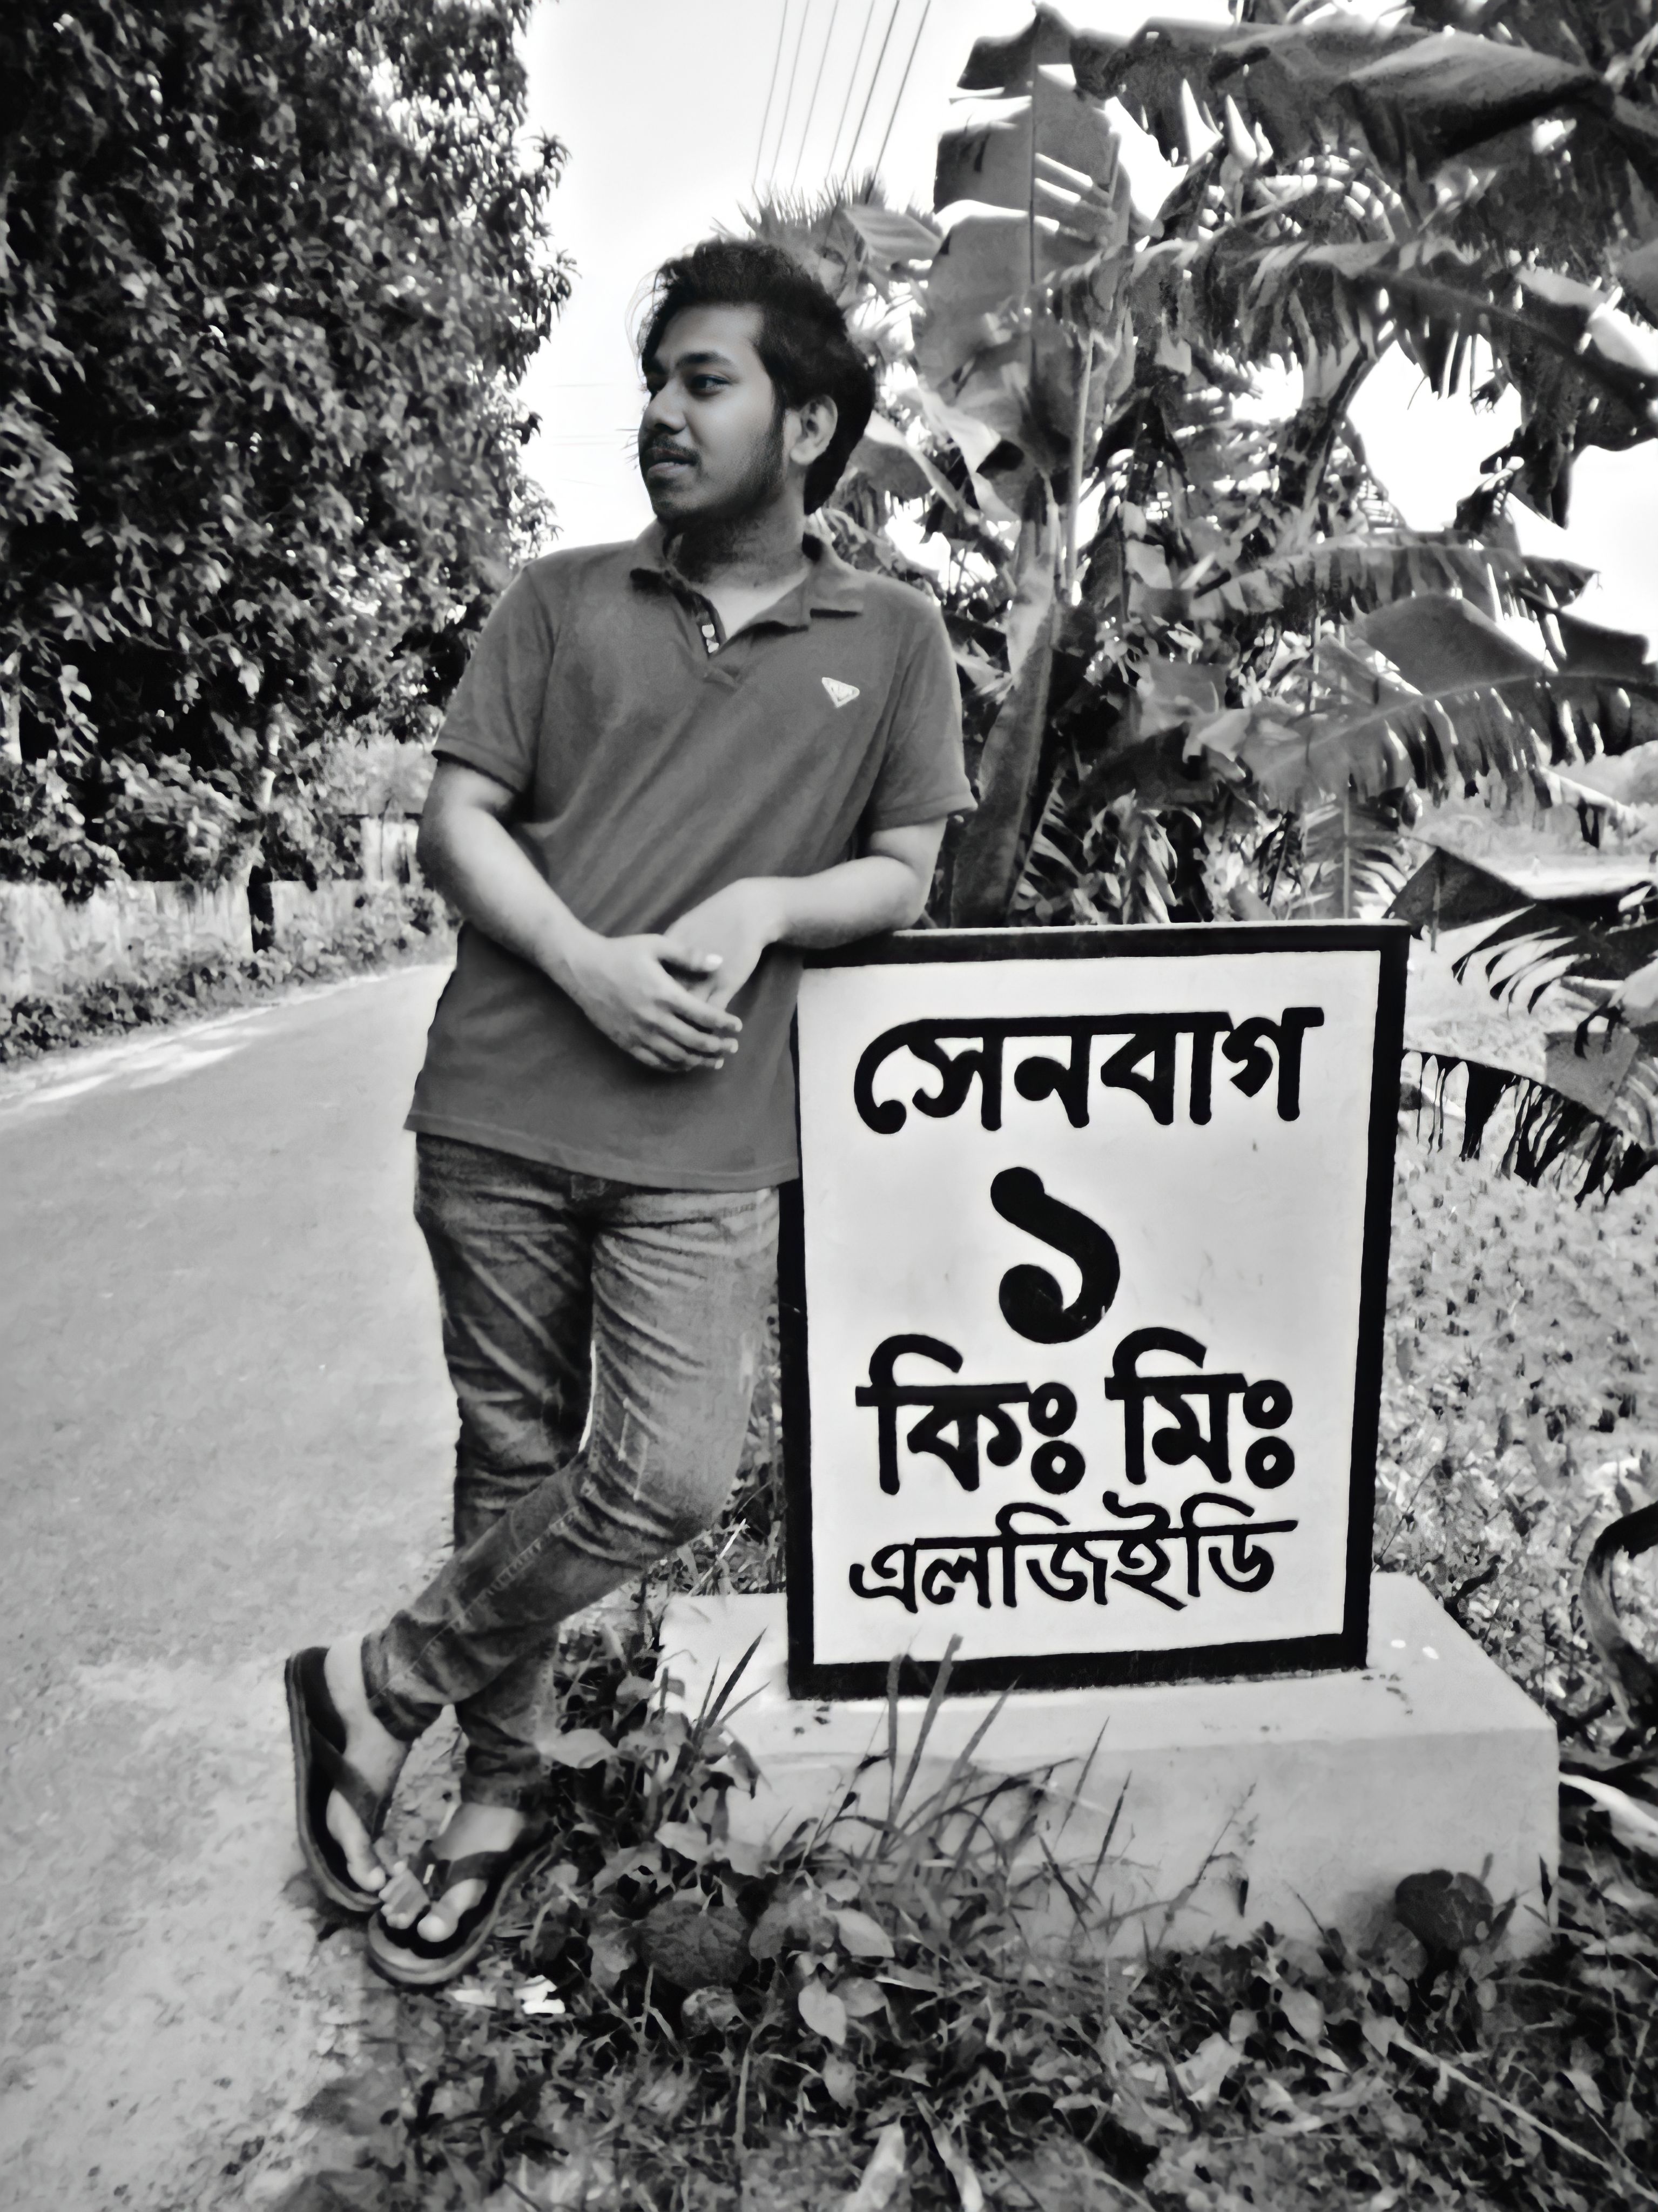 সেনবাগ
১
কিঃ মিঃ
এলজিইডি